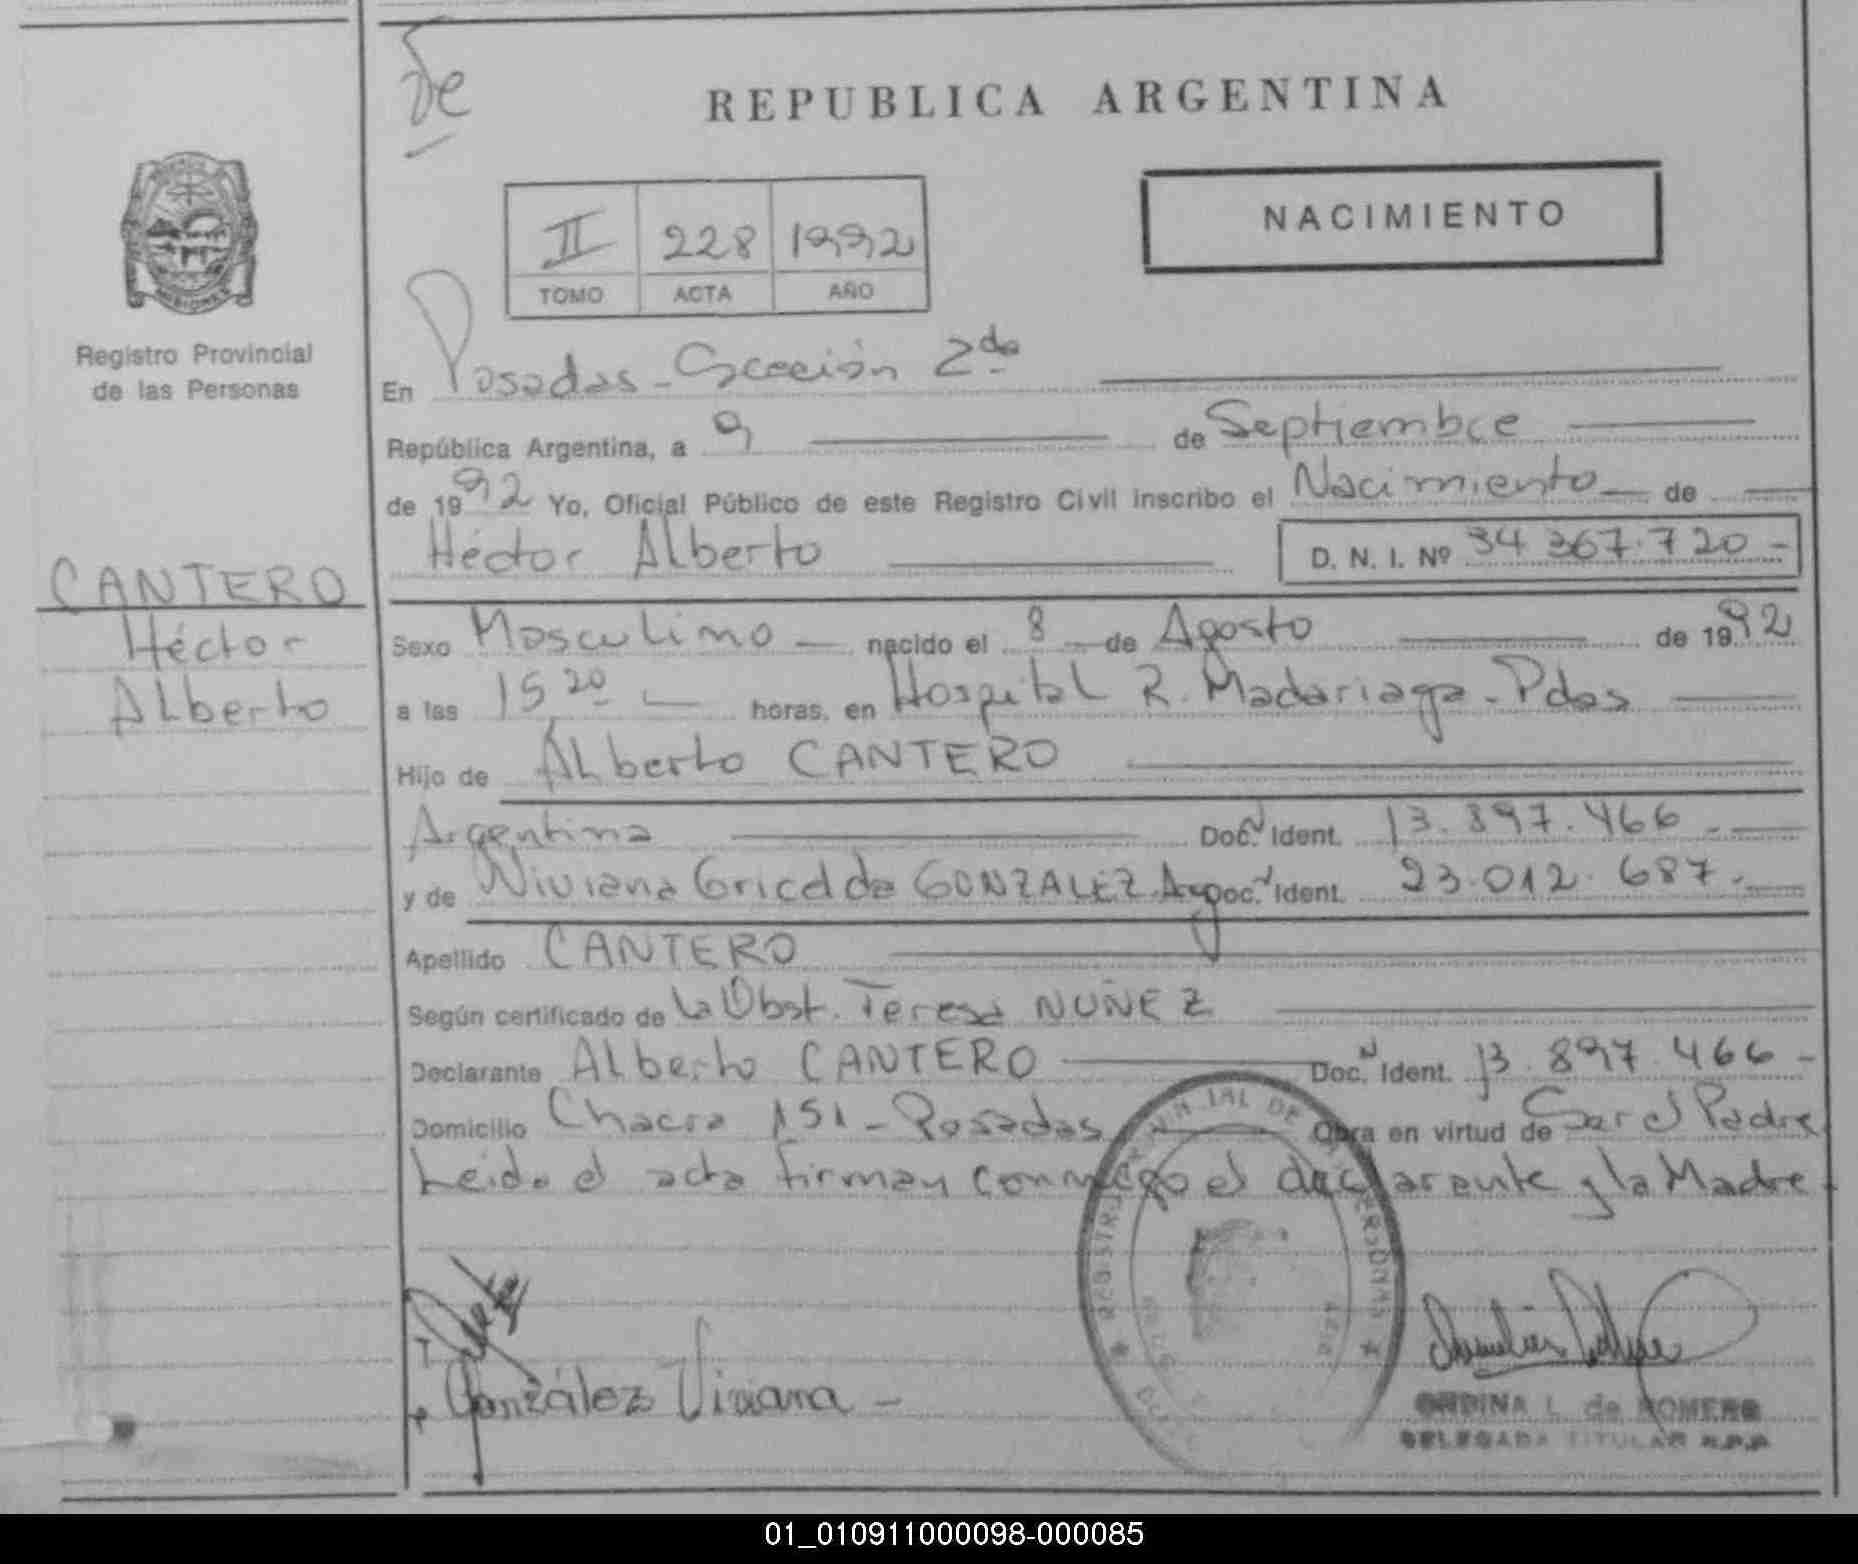 De
REPUBLICA ARGENTINA
NACIMIENTO
II 228 1992
TOMO ACTA AÑO
Registro Provincial
de las Personas
En Posadas - Sección 2da
República Argentina, a 9 de Septiembre
de 1992 Yo, Oficial Público de este Registro Civil inscribo el Nacimiento de
Héctor Alberto D. N. I. Nº 34.367.720-
CANTERO
Héctor
Alberto
Sexo Masculino nacido el 8 de Agosto de 1992
a las 15 20 horas, en Hospital R. Madariaga - Pdas
Hijo de Alberto CANTERO
Argentina Doc. Ident. 13.897.466-
y de Niviana Gricelda GONZALEZ Arg Doc. Ident. 23.012.687-
Apellido CANTERO
Según certificado de la Obst. Teresa NUÑEZ
Declarante Alberto CANTERO Doc. Ident. 13.897.466-
Domicilio Chacra 151 - Posadas Obra en virtud de Ser el Padre
Leída el acta firman conmigo el declarante y la Madre
González Viviana -
L. de ROMERO
DELEGADA TITULAR R.P.P.
01_010911000098-000085